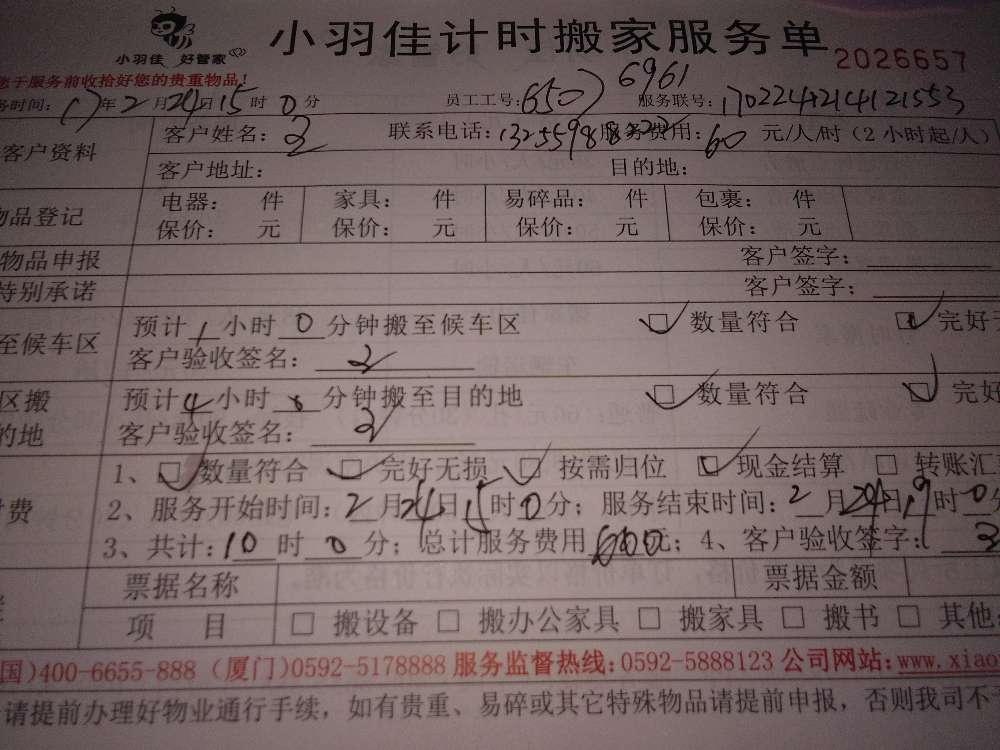 小羽佳 好管家
小羽佳计时搬家服务单
2026657
您于服务前收拾好您的贵重物品!
务时间: 17年2月24日15时0分 员工工号: 6507 6961 服务联号: 170224214121553
客户资料
客户姓名: 联系电话: 服务费用: 60 元/人/时(2小时起/人)
客户地址: 目的地:
物品登记
电器: 件 家具: 件 易碎品: 件 包裹: 件
保价: 元 保价: 元 保价: 元 保价: 元
物品申报 客户签字:
特别承诺 客户签字:
至候车区
预计1小时0分钟搬至候车区 □数量符合 □完好
客户验收签名:
区搬
的地
预计4小时0分钟搬至目的地 □数量符合 □完好
客户验收签名:
付费
1、□数量符合 □完好无损 □按需归位 □现金结算 □转账汇
2、服务开始时间: 2月24日15时0分; 服务结束时间: 2月24日19时0分
3、共计: 10时0分; 总计服务费用600元; 4、客户验收签字:
票据名称 票据金额
项 目 □搬设备 □搬办公家具 □搬家具 □搬书 □其他
国)400-6655-888 (厦门)0592-5178888 服务监督热线:0592-5888123 公司网站:www.xiao
请提前办理好物业通行手续，如有贵重、易碎或其它特殊物品请提前申报，否则我司不